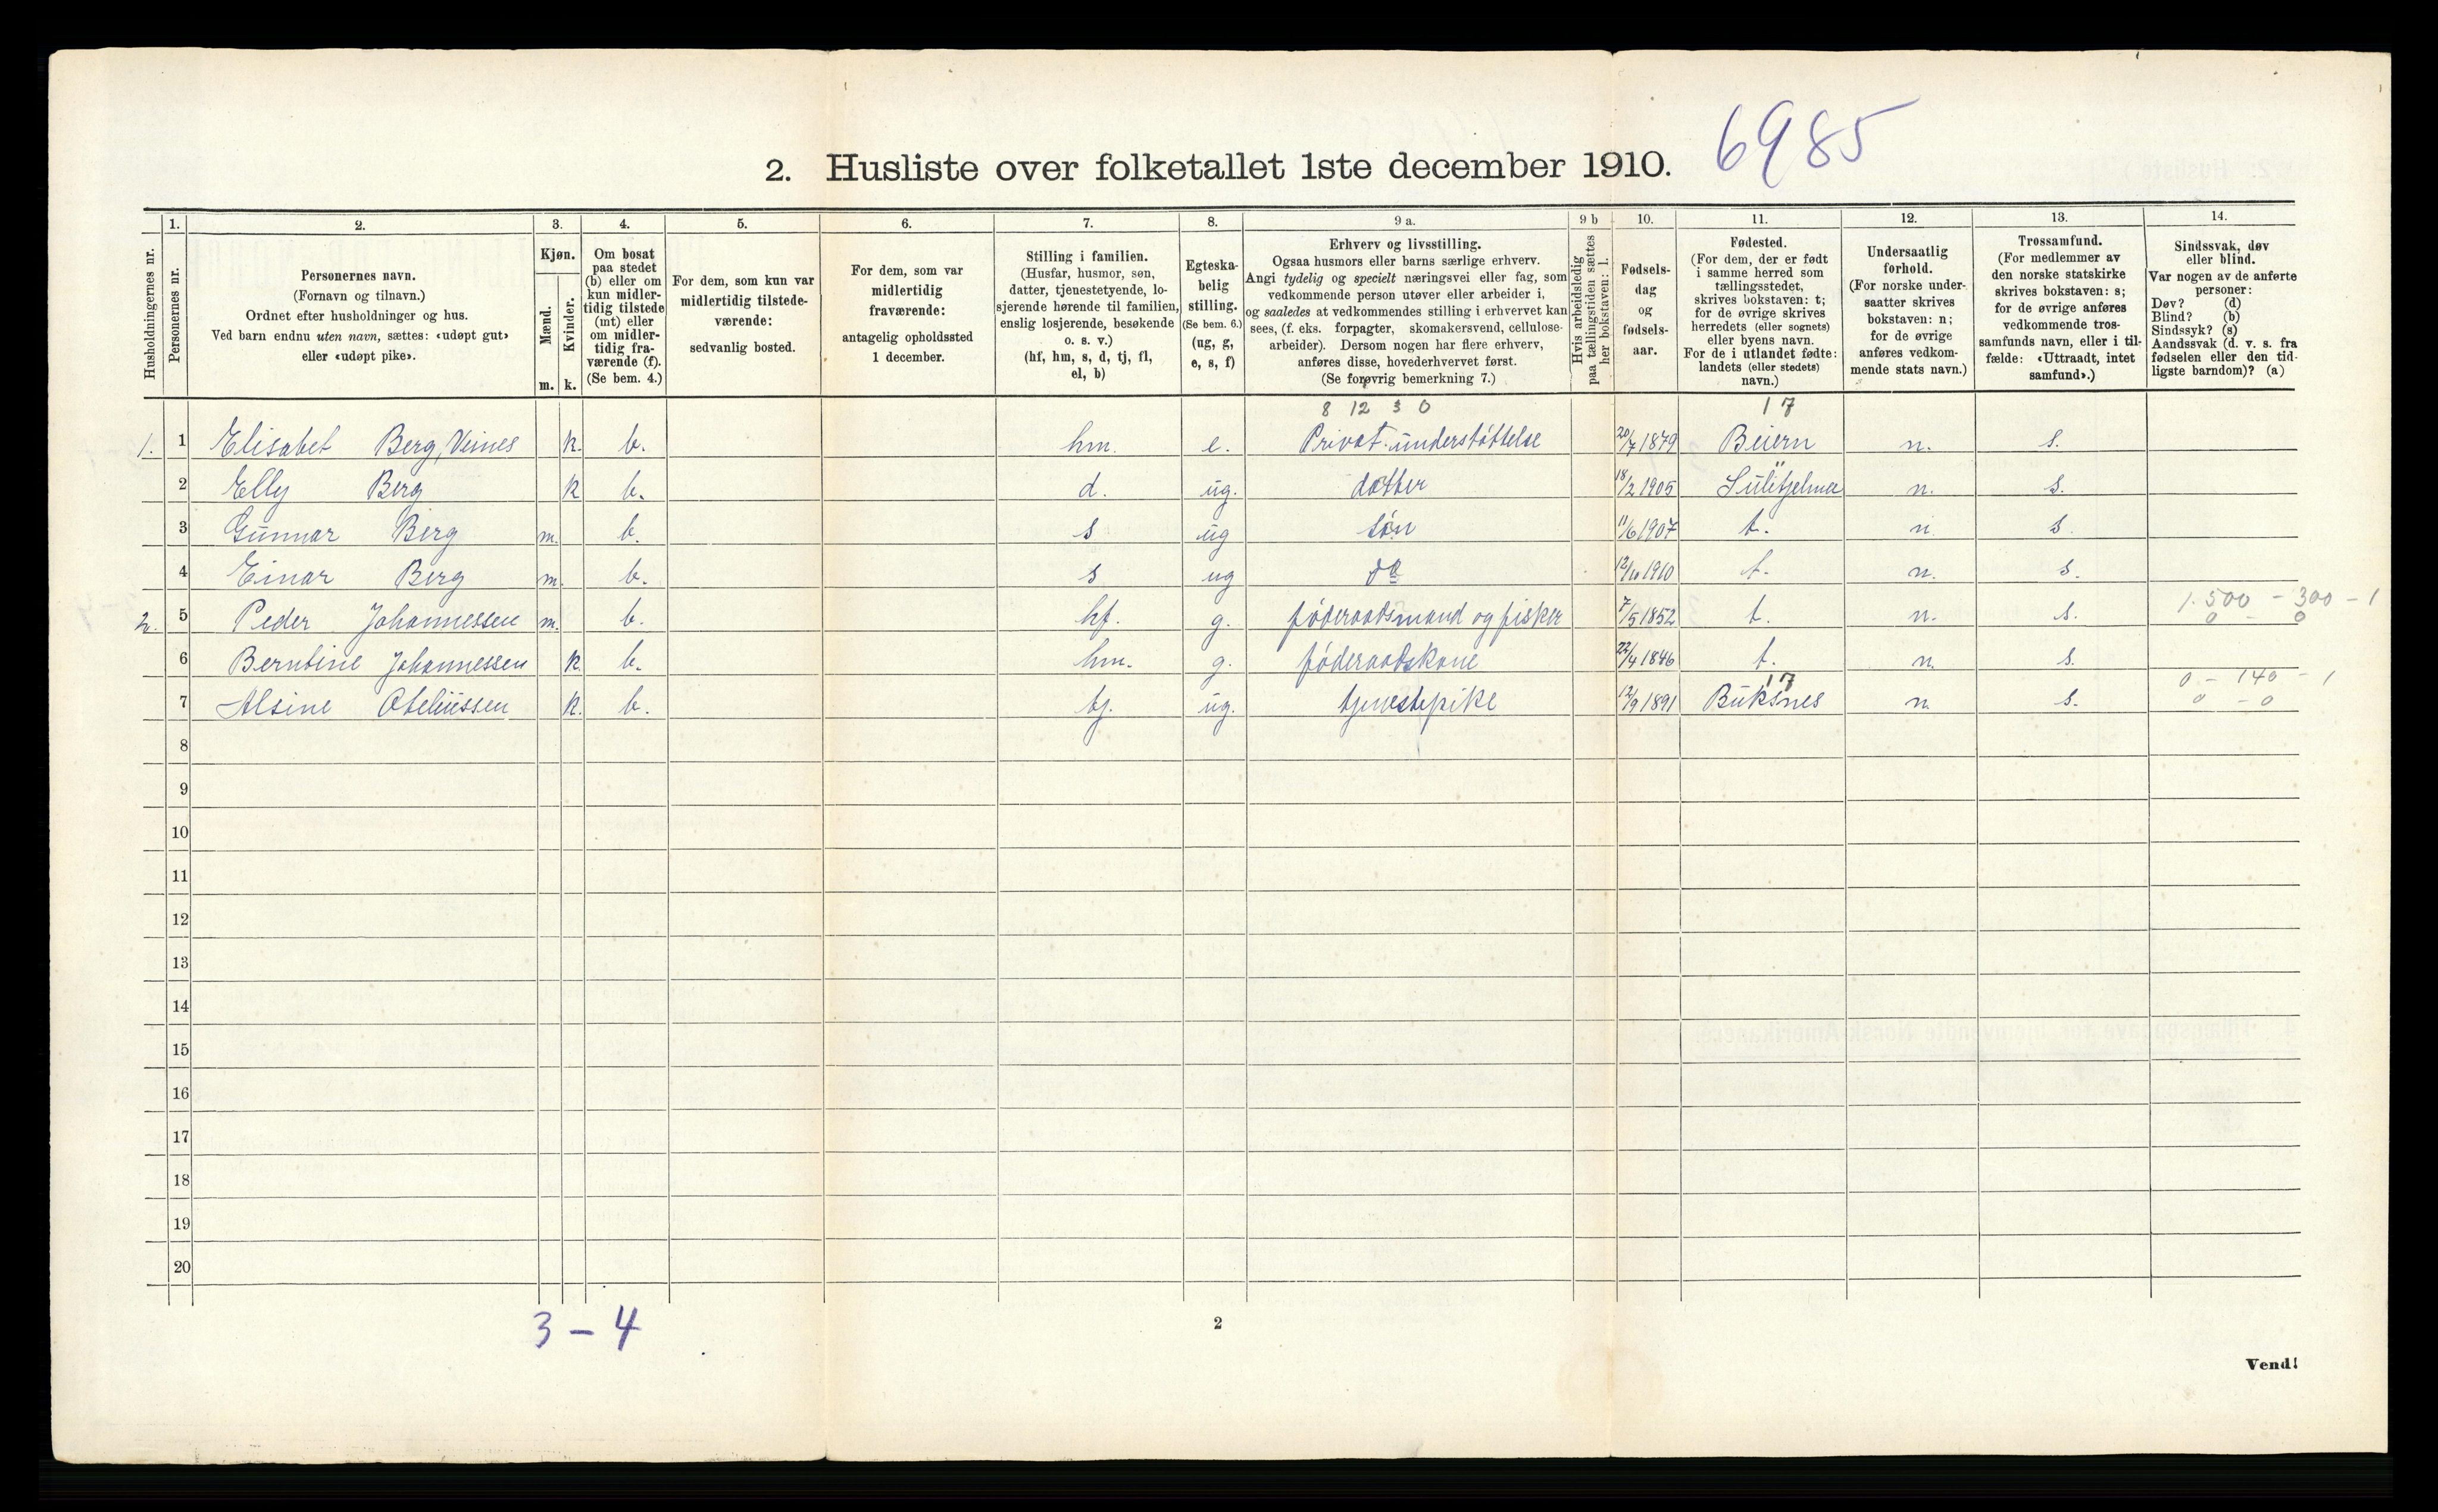 6985
2. Husliste over folketallet 1ste december 1910.
1. 2. 3. 4. 5. 6. 7. 8. 9 a. 9 b 10. 11. 12. 13. 14.
Husholdningernes nr.
Personernes nr.
Personernes navn.
(Fornavn og tilnavn.)
Ordnet efter husholdninger og hus.
Ved barn endnu uten navn, sættes: «udøpt gut»
eller «udøpt pike».
Kjøn.
Mænd.
Kvinder.
m. k.
Om bosat
paa stedet
(b) eller om
kun midler-
tidig tilstede
(mt) eller
om midler-
tidig fra-
værende (f).
(Se bem. 4.)
For dem, som kun var
midlertidig tilstede-
værende:
sedvanlig bosted.
For dem, som var
midlertidig
fraværende:
antagelig opholdssted
1 december.
Stilling i familien.
(Husfar, husmor, søn,
datter, tjenestetyende, lo-
sjerende hørende til familien,
enslig losjerende, besøkende
o. s. v.)
(hf, hm, s, d, tj, fl,
el, b)
Egteska-
belig
stilling.
(Se bem. 6.)
(ug, g,
e, s, f)
Erhverv og livsstilling.
Ogsaa husmors eller barns særlige erhverv.
Angi tydelig og specielt næringsvei eller fag, som
vedkommende person utøver eller arbeider i,
og saaledes at vedkommendes stilling i erhvervet kan
sees, (f. eks. forpagter, skomakersvend, cellulose-
arbeider). Dersom nogen har flere erhverv,
anføres disse, hovederhvervet først.
(Se forøvrig bemerkning 7.)
Hvis arbeidsledig
paa tællingstiden sættes
her bokstaven: l.
Fødsels-
dag
og
fødsels-
aar.
Fødested.
(For dem, der er født
i samme herred som
tællingsstedet,
skrives bokstaven: t;
for de øvrige skrives
herredets (eller sognets)
eller byens navn.
For de i utlandet fødte:
landets (eller stedets)
navn.)
Undersaatlig
forhold.
(For norske under-
saatter skrives
bokstaven: n;
for de øvrige
anføres vedkom-
mende stats navn.)
Trossamfund.
(For medlemmer av
den norske statskirke
skrives bokstaven: s;
for de øvrige anføres
vedkommende tros-
samfunds navn, eller i til-
fælde: «Uttraadt, intet
samfund».)
Sindssvak, døv
eller blind.
Var nogen av de anførte
personer:
Døv? (d)
Blind? (b)
Sindssyk? (s)
Aandssvak (d. v. s. fra
fødselen eller den tid-
ligste barndom)? (a)
8 12 3 0 17
1. 1 Elisabet Berg, Veines k. b. hm. e. Privat understøttelse 20/7 1879 Beiern n. s.
2 Elly Berg k b. d. ug. datter 18/2 1905 Sulitjelma n. s.
3 Gunnar Berg m. b. s ug søn 11/6 1907 t. n s.
4 Einar Berg m. b. s ug do 1910 t. n. s.
1.500 - 300 - 1
2. 5 Peder Johannessen m. b. hf. g. føderaadsmand og fisker 7/5 1852 t. n. s. 0 - 0
6 Berntine Johannessen k. b. hm. g. føderaadskone 22/4 1846 t. n. s.
17 0 - 140 - 1
7 Alsine Oteliussen k. b. tj. ug. tjenestepike 12/9 1891 Buksnes n. s. 0 - 0
8
9
10
11
12
13
14
15
16
17
18
19
20
3 - 4
2
Vend!